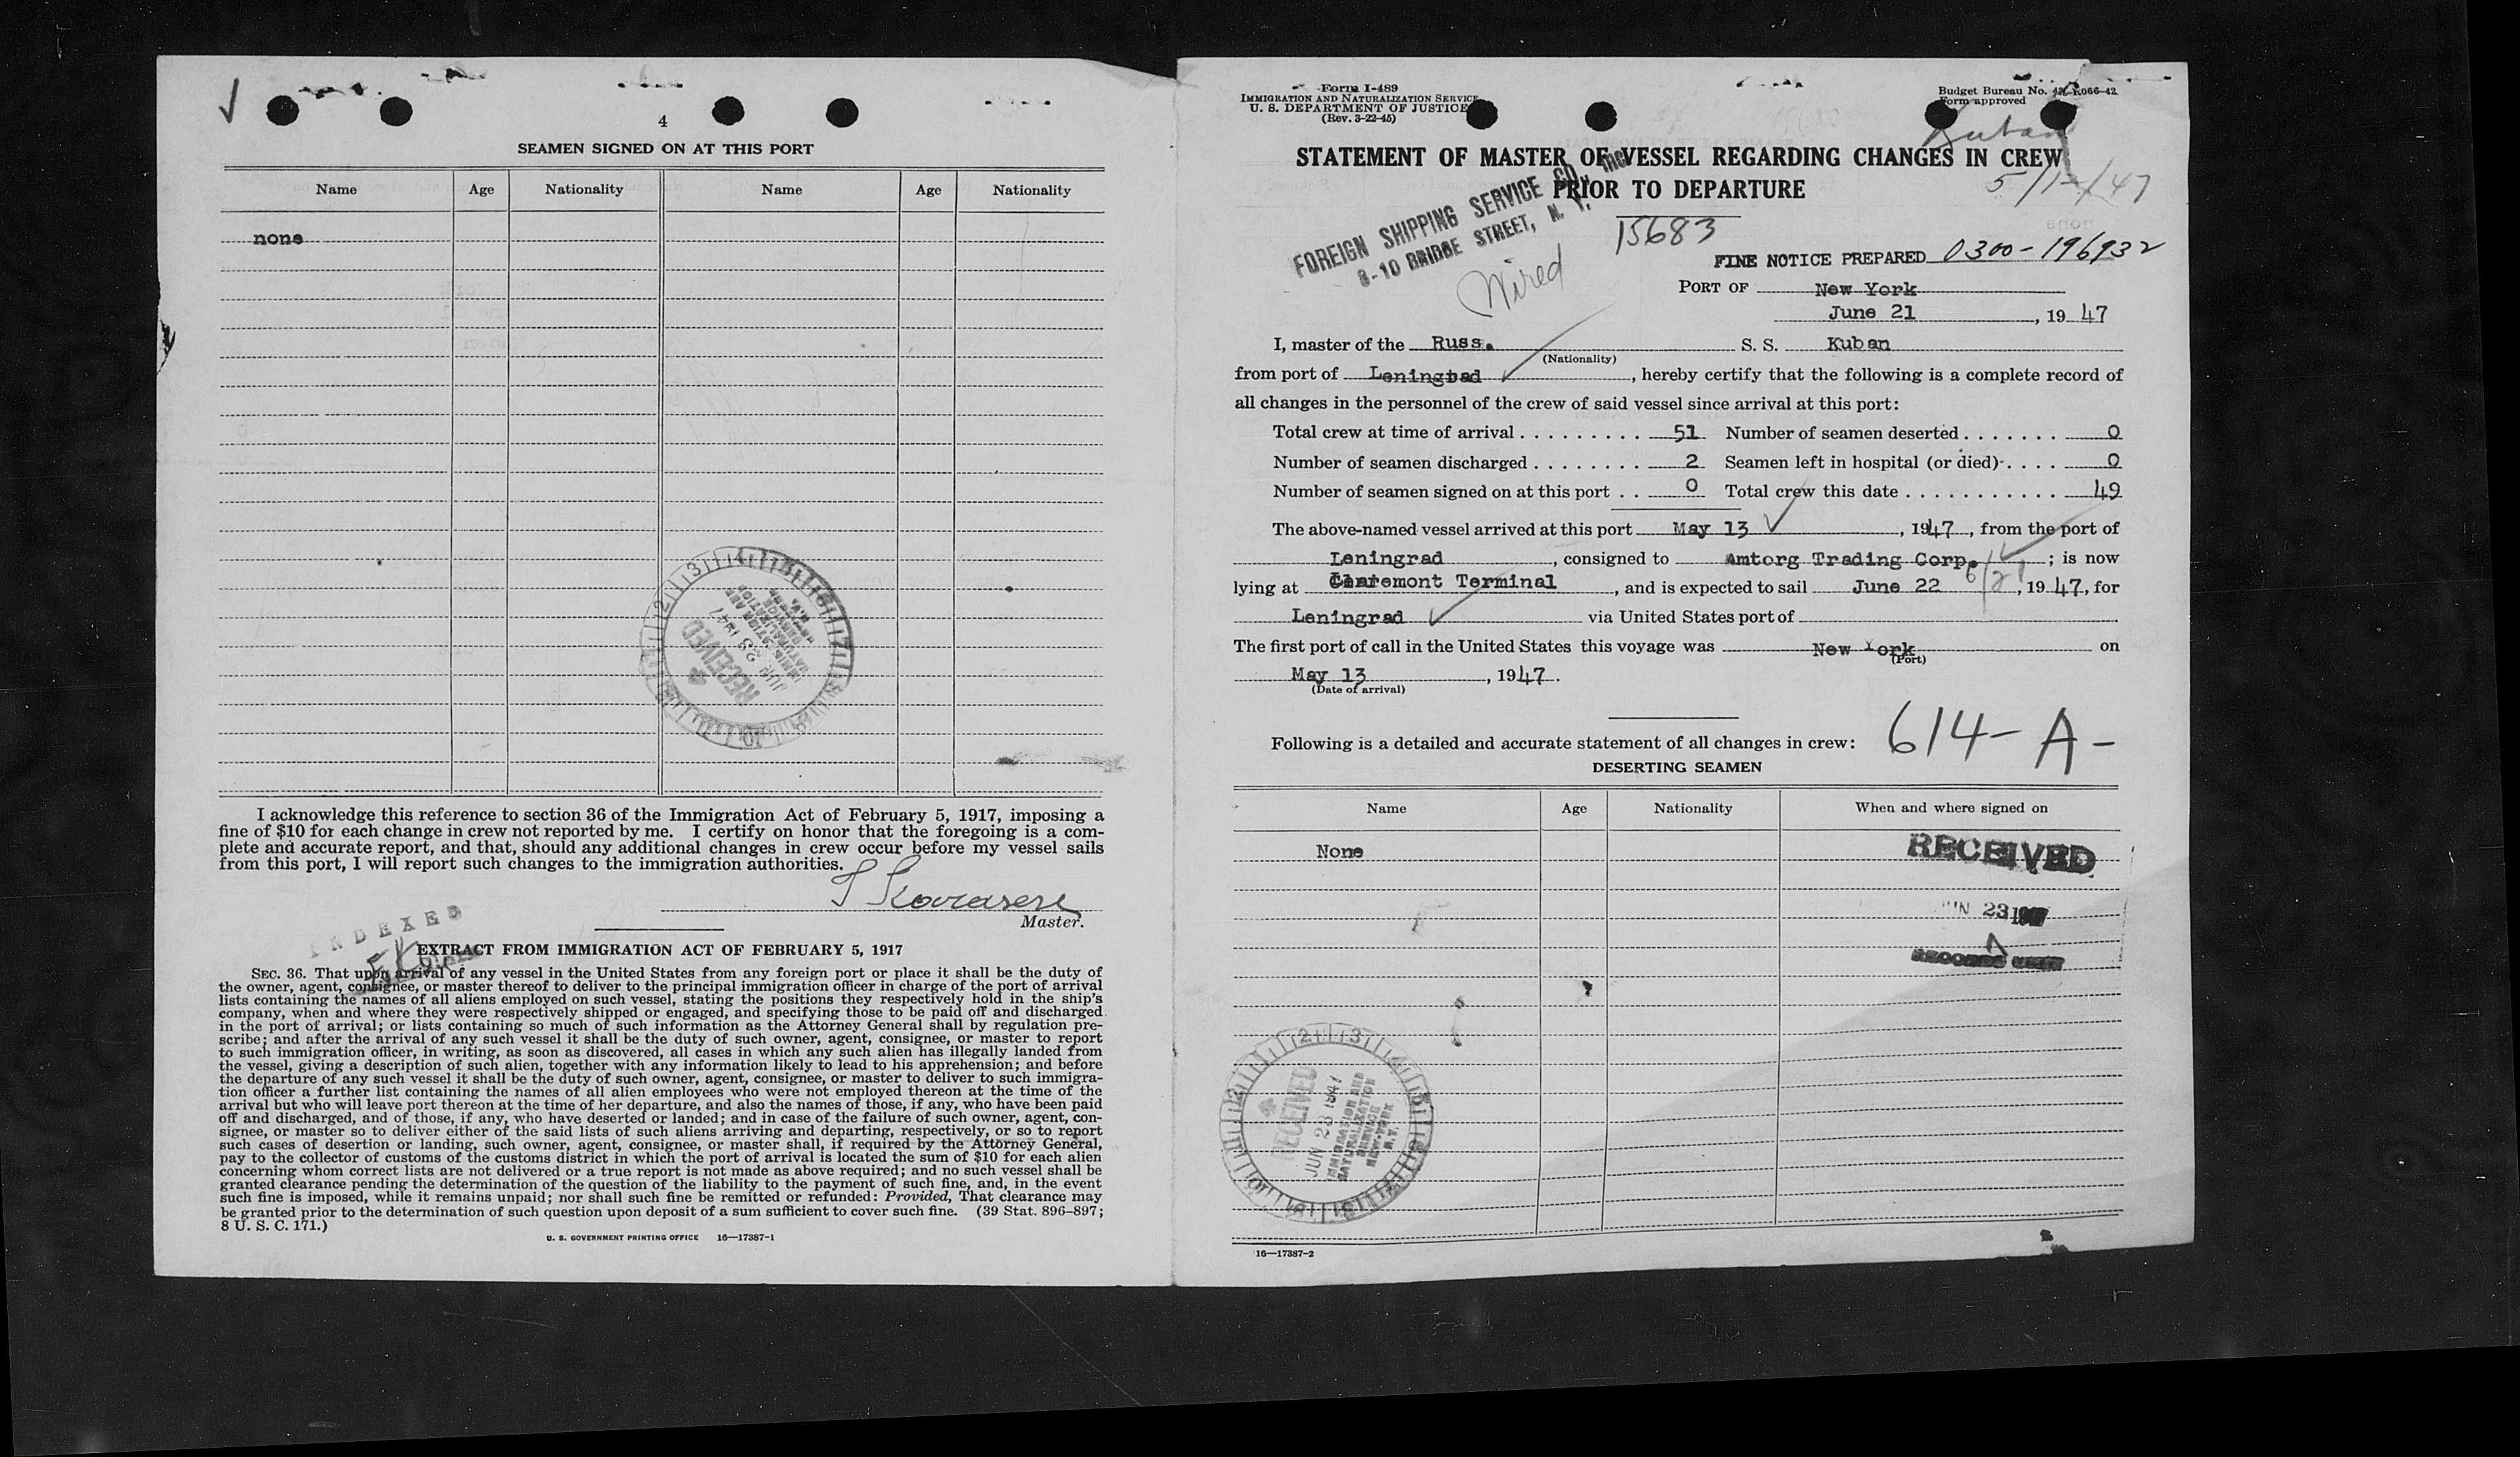 4
SEAMEN SIGNED ON AT THIS PORT
Name Age Nationality Name Age Nationality
none
RECEIVED
JUN 23 1947
IMMIGRATION AND
NATURALIZATION
SERVICE
I acknowledge this reference to section 36 of the Immigration Act of February 5, 1917, imposing a
fine of $10 for each change in crew not reported by me. I certify on honor that the foregoing is a com-
plete and accurate report, and that, should any additional changes in crew occur before my vessel sails
from this port, I will report such changes to the immigration authorities.
Master.
INDEXED
EXTRACT FROM IMMIGRATION ACT OF FEBRUARY 5, 1917
SEC. 36. That upon arrival of any vessel in the United States from any foreign port or place it shall be the duty of
the owner, agent, consignee, or master thereof to deliver to the principal immigration officer in charge of the port of arrival
lists containing the names of all aliens employed on such vessel, stating the positions they respectively hold in the ship's
company, when and where they were respectively shipped or engaged, and specifying those to be paid off and discharged
in the port of arrival; or lists containing so much of such information as the Attorney General shall by regulation pre-
scribe; and after the arrival of any such vessel it shall be the duty of such owner, agent, consignee, or master to report
to such immigration officer, in writing, as soon as discovered, all cases in which any such alien has illegally landed from
the vessel, giving a description of such alien, together with any information likely to lead to his apprehension; and before
the departure of any such vessel it shall be the duty of such owner, agent, consignee, or master to deliver to such immigra-
tion officer a further list containing the names of all alien employees who were not employed thereon at the time of the
arrival but who will leave port thereon at the time of her departure, and also the names of those, if any, who have been paid
off and discharged, and of those, if any, who have deserted or landed; and in case of the failure of such owner, agent, con-
signee, or master so to deliver either of the said lists of such aliens arriving and departing, respectively, or so to report
such cases of desertion or landing, such owner, agent, consignee, or master shall, if required by the Attorney General,
pay to the collector of customs of the customs district in which the port of arrival is located the sum of $10 for each alien
concerning whom correct lists are not delivered or a true report is not made as above required; and no such vessel shall be
granted clearance pending the determination of the question of the liability to the payment of such fine, and, in the event
such fine is imposed, while it remains unpaid; nor shall such fine be remitted or refunded: Provided, That clearance may
be granted prior to the determination of such question upon deposit of a sum sufficient to cover such fine. (39 Stat. 896–897;
8 U. S. C. 171.)
U. S. GOVERNMENT PRINTING OFFICE 16—17387-1
Form I-489
IMMIGRATION AND NATURALIZATION SERVICE
U. S. DEPARTMENT OF JUSTICE
(Rev. 3-22-45)
Budget Bureau No.
Form approved
Kuban
STATEMENT OF MASTER OF VESSEL REGARDING CHANGES IN CREW
PRIOR TO DEPARTURE
FOREIGN SHIPPING SERVICE CO., Inc
8-10 BRIDGE STREET, N. Y.
Wired
15683
FINE NOTICE PREPARED 0300-196932
PORT OF New York
June 21, 1947
I, master of the Russ. S. S. Kuban
(Nationality)
from port of Leningrad, hereby certify that the following is a complete record of
all changes in the personnel of the crew of said vessel since arrival at this port:
Total crew at time of arrival 51 Number of seamen deserted 0
Number of seamen discharged 2 Seamen left in hospital (or died) 0
Number of seamen signed on at this port 0 Total crew this date 49
The above-named vessel arrived at this port May 13, 1947, from the port of
Leningrad, consigned to Amtorg Trading Corp.; is now
lying at Claremont Terminal, and is expected to sail June 22, 1947, for
6/21
Leningrad via United States port of
The first port of call in the United States this voyage was New York on
(Port)
May 13, 1947.
(Date of arrival)
Following is a detailed and accurate statement of all changes in crew: 614-A-
DESERTING SEAMEN
Name Age Nationality When and where signed on
None
RECEIVED
JUN 23 1947
RECORDS UNIT
RECEIVED
JUN 23 1947
IMMIGRATION AND
NATURALIZATION
SERVICE
NEW-YORK
N.Y.
16—17387-2